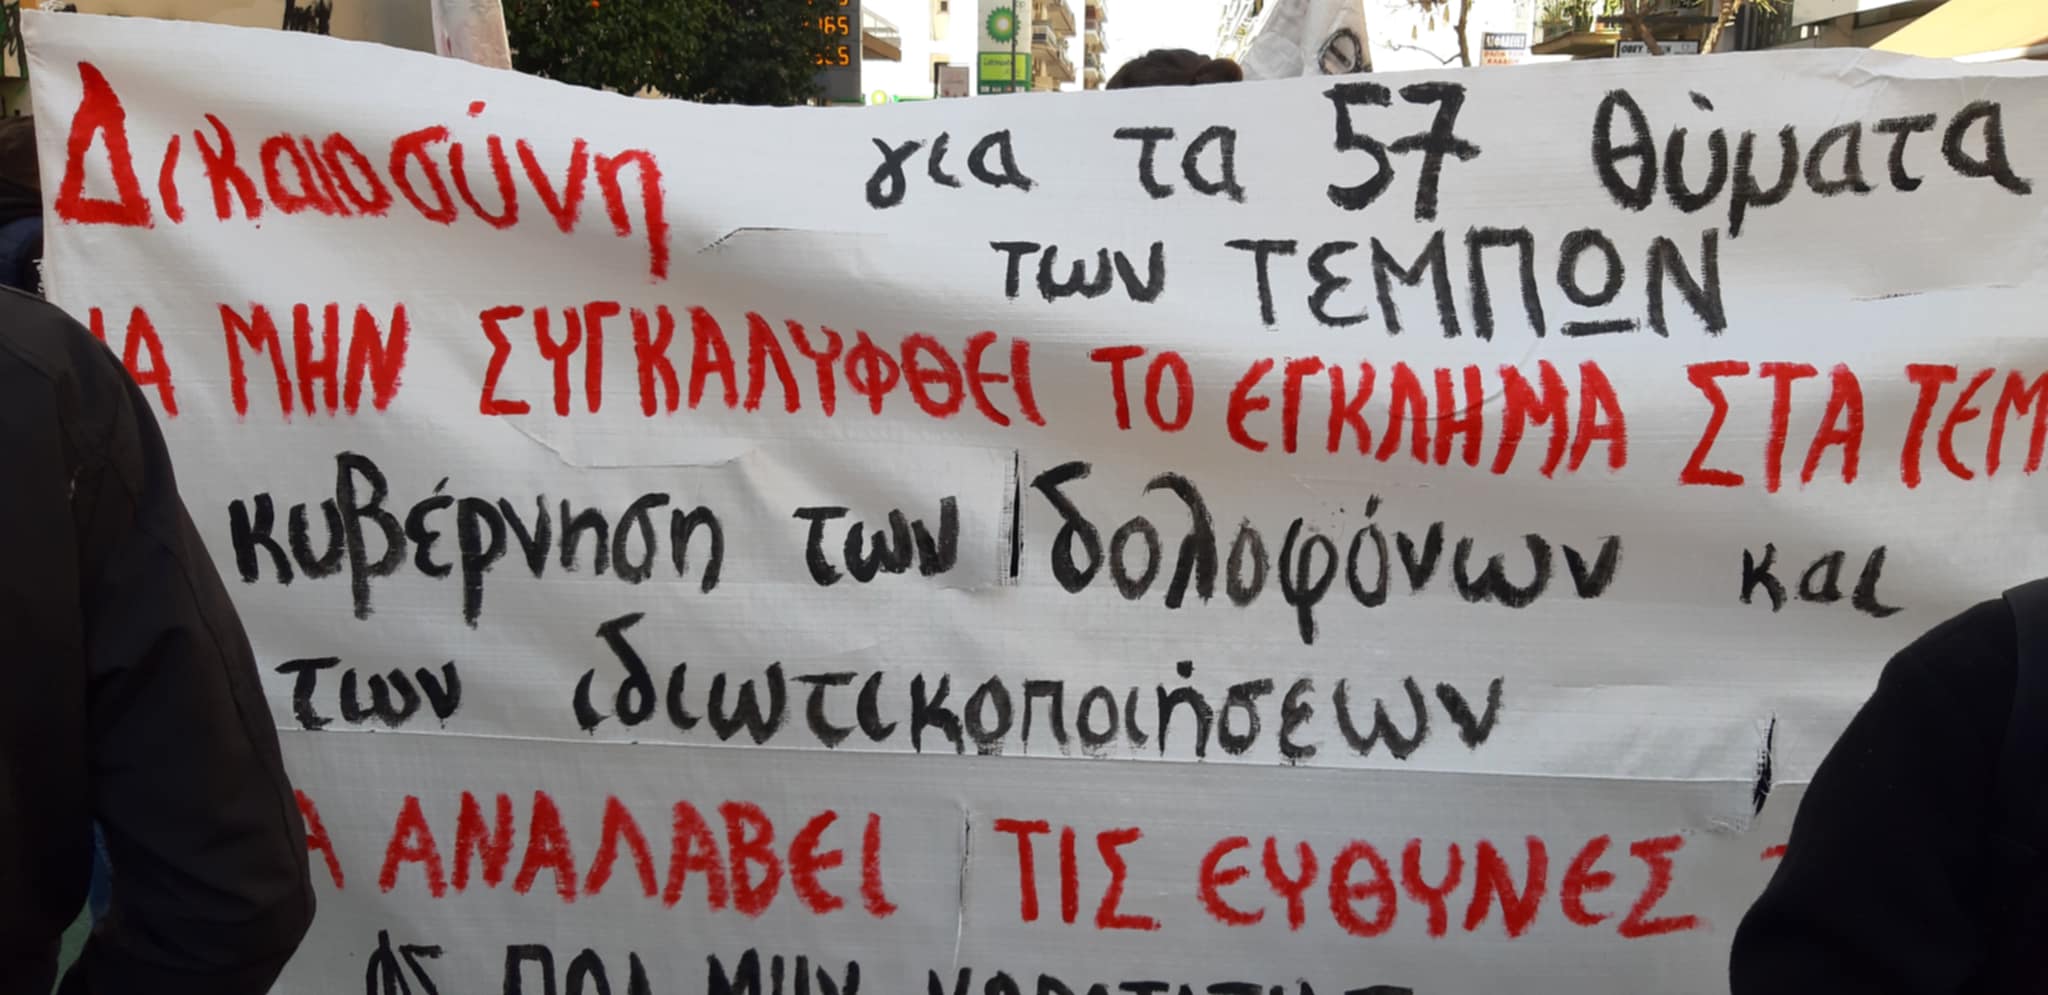 Δικαιοσύνη για τα 57 θύματα
των ΤΕΜΠΩΝ
ΝΑ ΜΗΝ ΣΥΓΚΑΛΥΦΘΕΙ ΤΟ ΕΓΚΛΗΜΑ ΣΤΑ ΤΕΜ
κυβέρνηση των δολοφόνων και
των ιδιωτικοποιήσεων
Α ΑΝΑΛΑΒΕΙ ΤΙΣ ΕΥΘΥΝΕΣ
bp